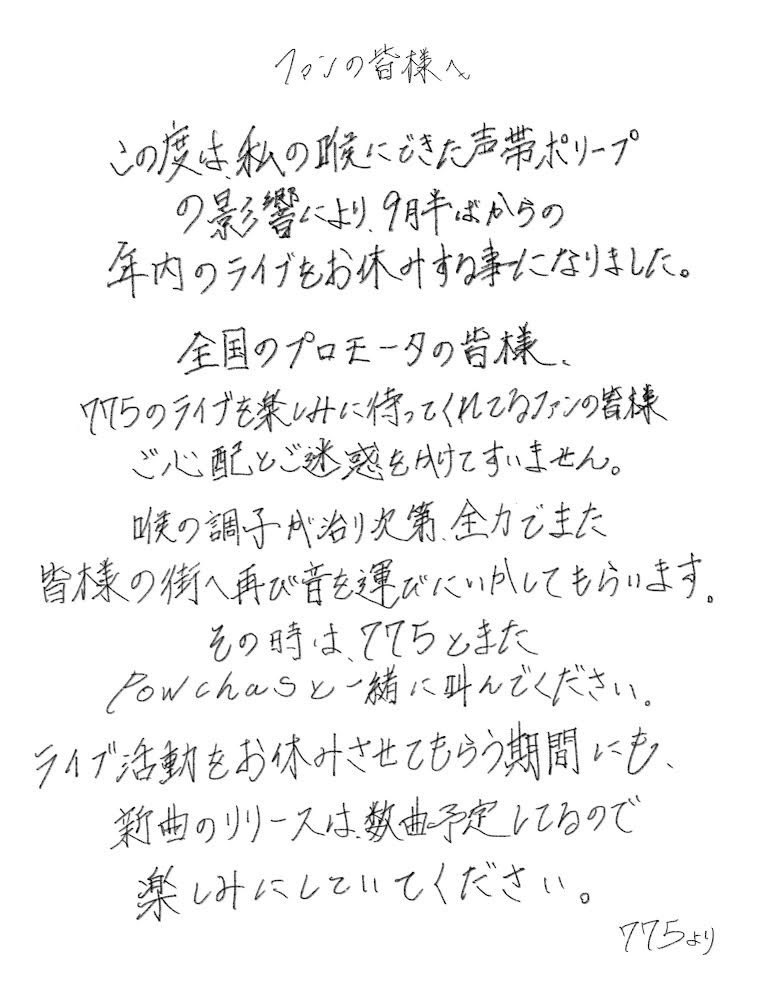 ファンの皆様へ
この度は、私の喉にできた声帯ポリープ
の影響により、9月半ばからの
年内のライブをお休みする事になりました。
全国のプロモータの皆様、
775のライブを楽しみに待ってくれてるファンの皆様
ご心配とご迷惑をかけてすいません。
喉の調子が治り次第、全力でまた
皆様の街へ再び音を運びにいかしてもらいます。
その時は、775とまた
Powchasと一緒に叫んでください。
ライブ活動をお休みさせてもらう期間にも、
新曲のリリースは、数曲予定してるので
楽しみにしていてください。
775より